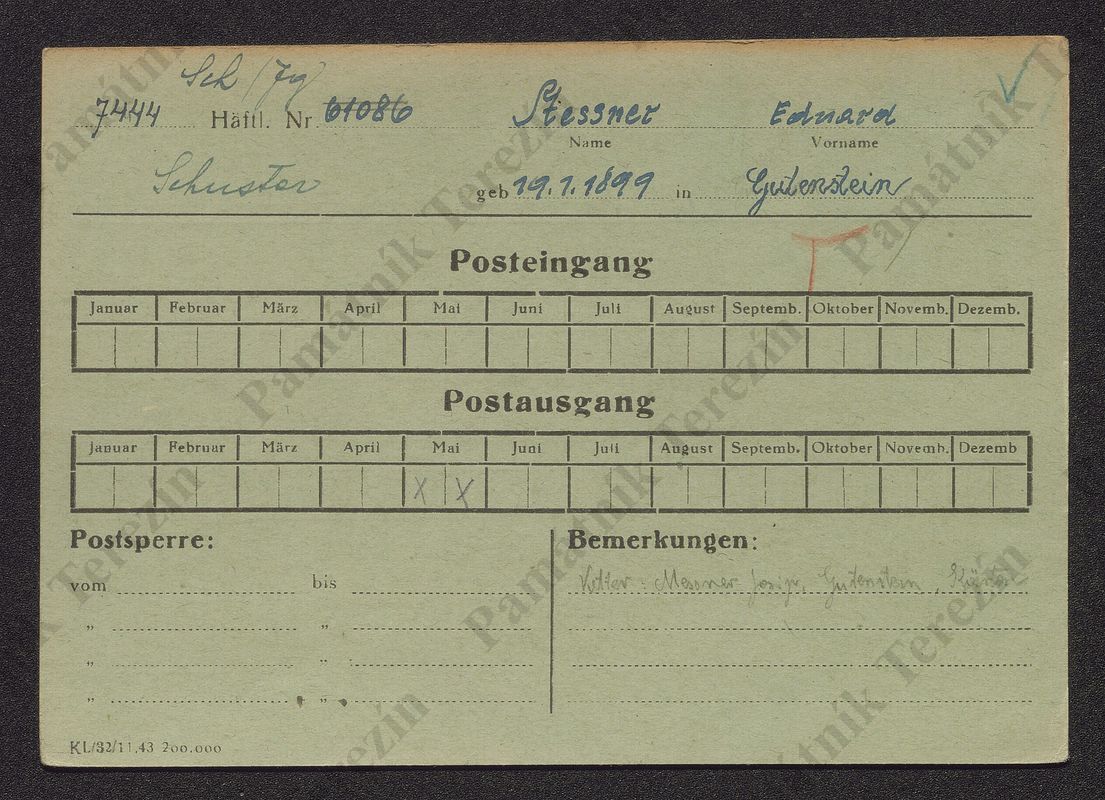 Sch
7444 Häftl. Nr. 61086 Stessner Eduard
Name Vorname
Schuster geb 19.1.1899 in Gutenstein
T
Posteingang
Januar Februar März April Mai Juni Juli August Septemb. Oktober Novemb. Dezemb.
Postausgang
Januar Februar März April Mai Juni Juli August Septemb. Oktober Novemb. Dezemb
X X
Postsperre: Bemerkungen:
vom bis
Messner Gutenstein
„ „
„ „
„ „
KL/32/11.43 200.000
Památník Terezín